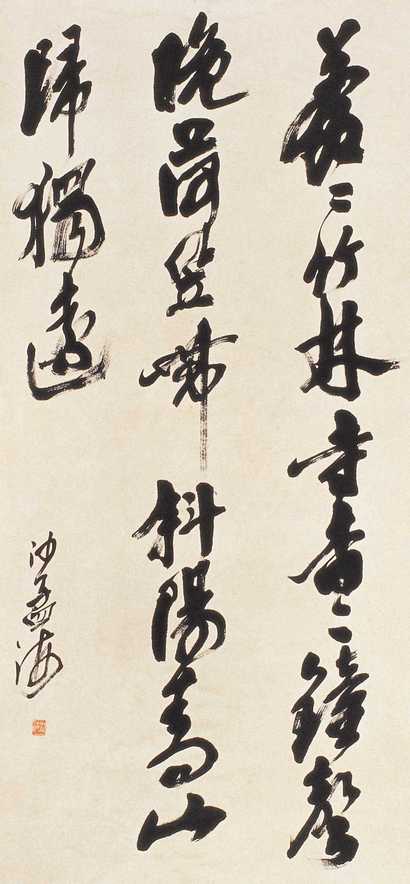 蒼〻竹林寺杳〻鐘聲
晚荷笠帶斜陽青山
歸獨遠
沙孟海